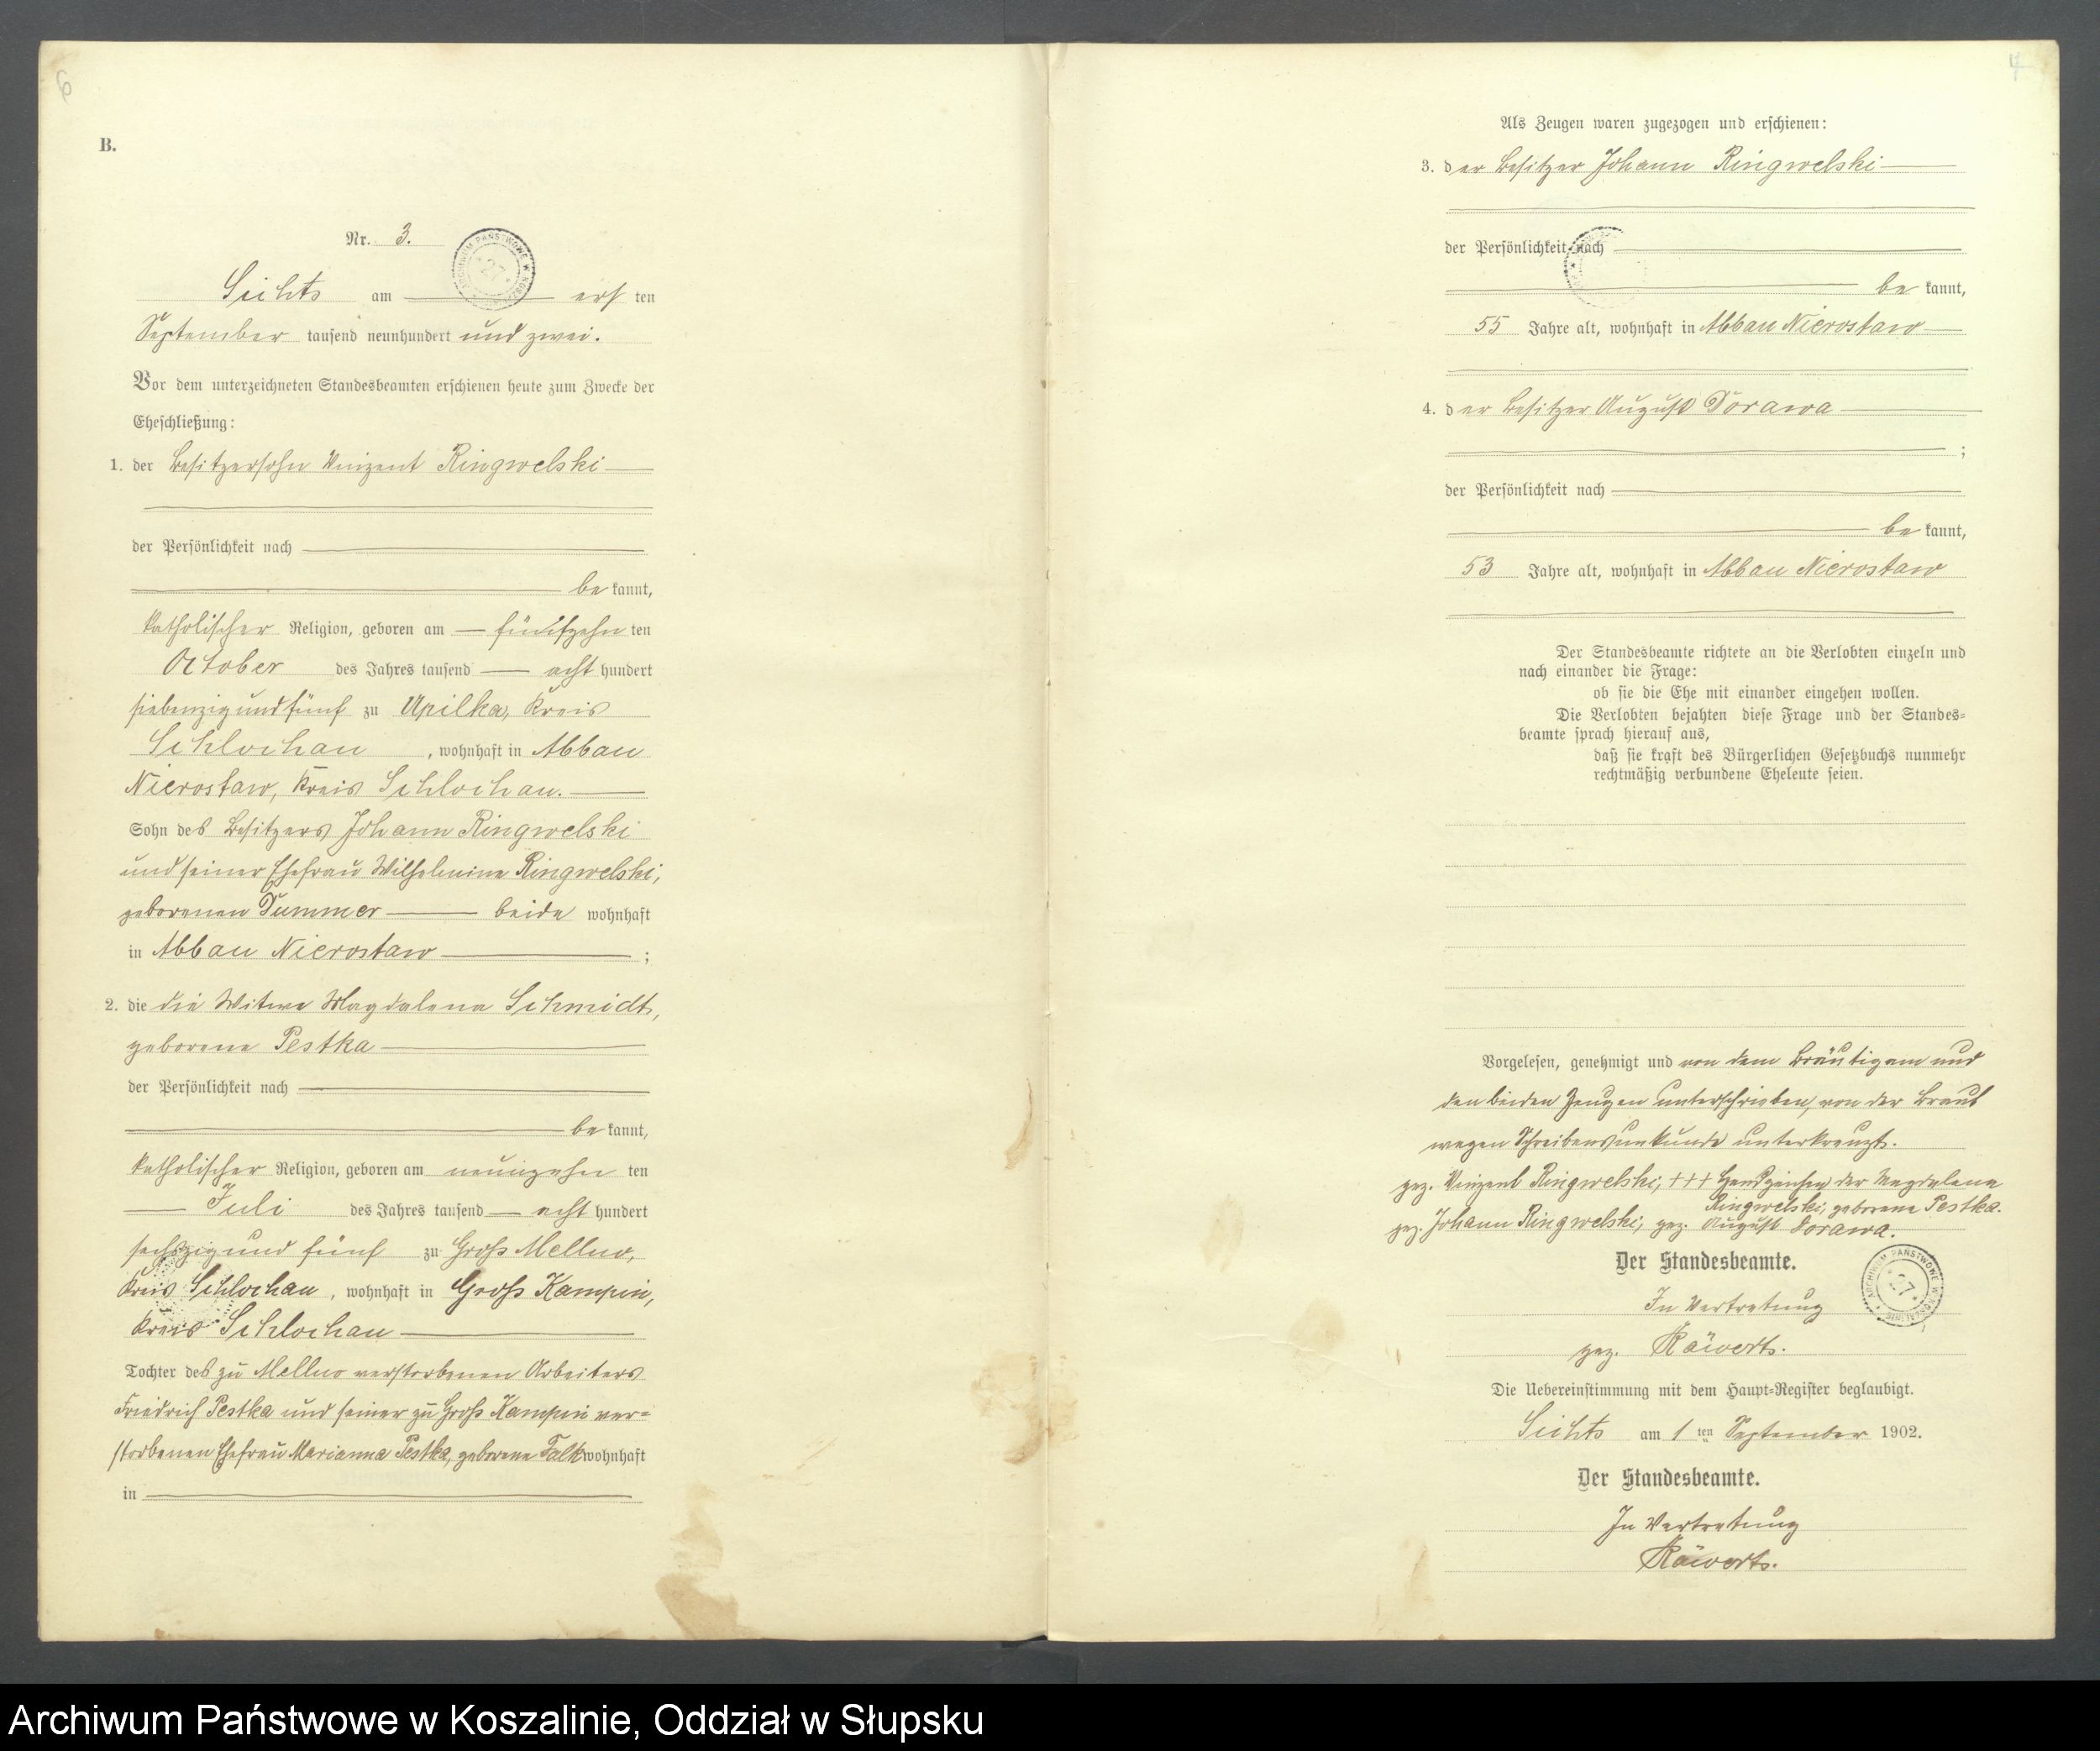 6
B.
Nr. 3.
ARCHIWUM PAŃSTWOWE W KOSZALINIE 27
Lichts am erſ ten
September tauſend neunhundert und zwei.
Vor dem unterzeichneten Standesbeamten erſchienen heute zum Zwecke der
Eheſchließung:
1. der Besitzersohn Vinzent Ringwelski
der Perſönlichkeit nach
be kannt,
katholischer Religion, geboren am fünfzehn ten
October des Jahres tauſend acht hundert
siebenzig und fünf zu Upilka, Kreis
Schlochau, wohnhaft in Abbau
Nierostaw, Kreis Schlochau.
Sohn des Besitzers Johann Ringwelski
und seiner Ehefrau Wilhelmine Ringwelski,
geborenen Dummer beide wohnhaft
in Abbau Nierostaw ;
2. die die Witwe Magdalena Schmidt,
geborene Pestka
der Perſönlichkeit nach
be kannt,
katholischer Religion, geboren am neunzehn ten
Juli des Jahres tauſend acht hundert
sechszig und fünf zu Groß Mellno,
Kreis Schlochau, wohnhaft in Groß Kampin,
Kreis Schlochau
Tochter des zu Mellno verstorbenen Arbeiters
Friedrich Pestka und seiner zu Groß Kampin ver=
storbenen Ehefrau Marianna Pestka, geborene Falk wohnhaft
in
4
Als Zeugen waren zugezogen und erſchienen:
3. der Besitzer Johann Ringwelski
der Perſönlichkeit nach
be kannt,
55 Jahre alt, wohnhaft in Abbau Nierostaw
4. der Besitzer August Dorawa
;
der Perſönlichkeit nach
be kannt,
53 Jahre alt, wohnhaft in Abbau Nierostaw
Der Standesbeamte richtete an die Verlobten einzeln und
nach einander die Frage:
ob ſie die Ehe mit einander eingehen wollen.
Die Verlobten bejahten dieſe Frage und der Standes=
beamte ſprach hierauf aus,
daß ſie kraft des Bürgerlichen Geſetzbuchs nunmehr
rechtmäßig verbundene Eheleute ſeien.
Vorgeleſen, genehmigt und von dem Bräutigam und
den beiden Zeugen unterschrieben, von der Braut
wegen Schreibensunkunde unterkreuzt.
gez. Vinzent Ringwelski, +++ Handzeichen der Magdalena
Ringwelski, geborene Pestka.
gez. Johann Ringwelski, gez. August Dorawa.
Der Standesbeamte.
In Vertretung
ARCHIWUM PAŃSTWOWE W KOSZALINIE 27
gez. Räwerts.
Die Uebereinſtimmung mit dem Haupt=Regiſter beglaubigt.
Lichts am 1 ten September 1902.
Der Standesbeamte.
In Vertretung
Räwerts.
Archiwum Państwowe w Koszalinie, Oddział w Słupsku